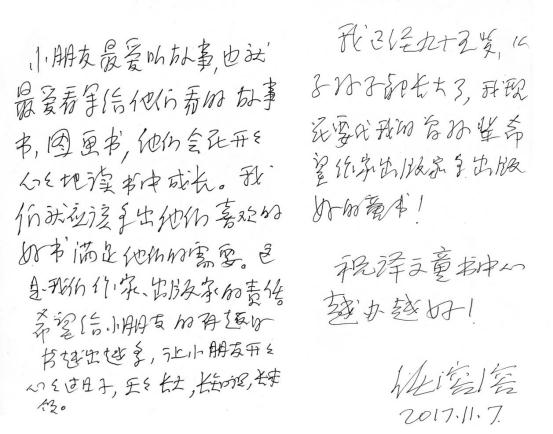 小朋友最爱听故事,也就
最爱看写给他们看的故事
书,图画书,他们会在开々
心々地读书中成长。我
们就应该多出他们喜欢的
好书满足他们的需要。这
是我们作家、出版家的责任。
希望给小朋友的有趣的
书越出越多,让小朋友开々
心々过日子,天々长大,长知识,长本
领。
我已经九十五岁,
子孙子都长大了,我现
在要代我的曾孙辈希
望作家出版家多出版
好的童书!
祝译文童书中心
越办越好!
任溶溶
2017.11.7.